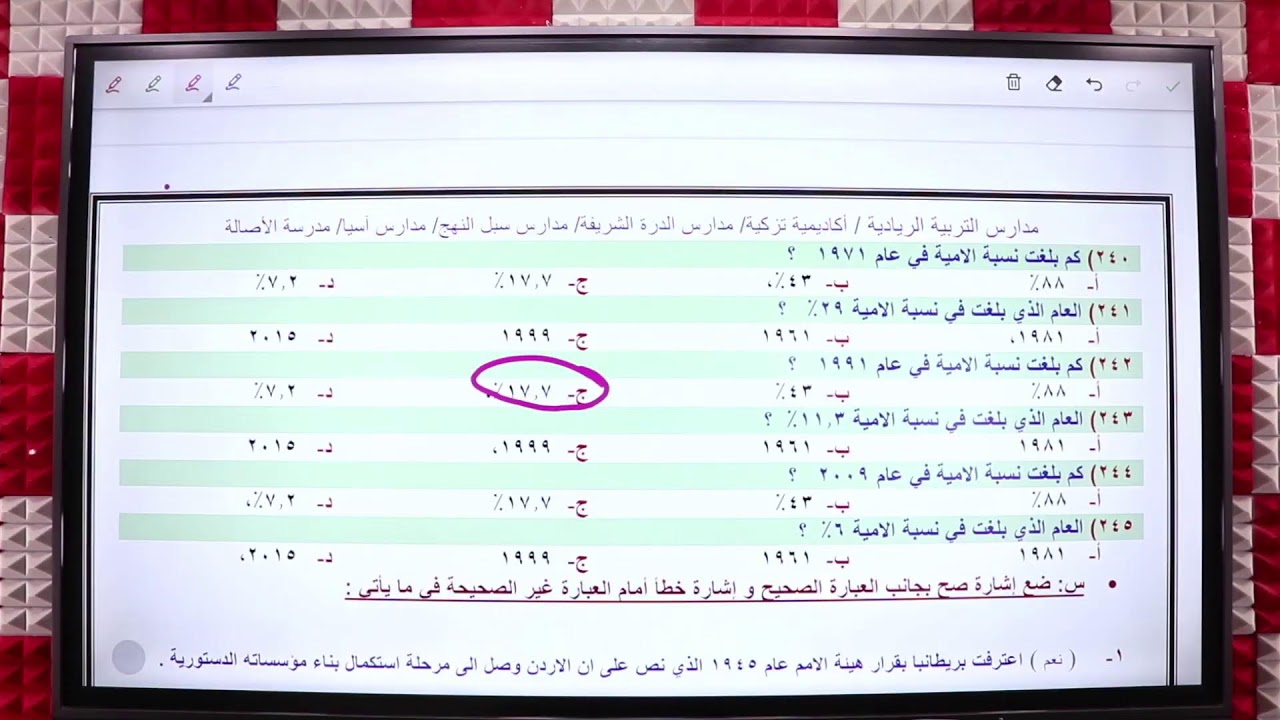 مدارس التربية الريادية / أكاديمية تزكية/ مدارس الدرة الشريفة/ مدارس سبل النهج/ مدارس آسيا/ مدرسة الأصالة
٢٤٠) كم بلغت نسبة الامية في عام ١٩٧١ ؟
أ- ٨٨٪ ب- ٤٣٪، ج- ١٧,٧٪ د- ٧,٢٪
٢٤١) العام الذي بلغت في نسبة الامية ٢٩٪ ؟
أ- ١٩٨١، ب- ١٩٦١ ج- ١٩٩٩ د- ٢٠١٥
٢٤٢) كم بلغت نسبة الامية في عام ١٩٩١ ؟
أ- ٨٨٪ ب- ٤٣٪ ج- ١٧,٧٪، د- ٧,٢٪
٢٤٣) العام الذي بلغت في نسبة الامية ١١,٣٪ ؟
أ- ١٩٨١ ب- ١٩٦١ ج- ١٩٩٩، د- ٢٠١٥
٢٤٤) كم بلغت نسبة الامية في عام ٢٠٠٩ ؟
أ- ٨٨٪ ب- ٤٣٪ ج- ١٧,٧٪ د- ٧,٢٪،
٢٤٥) العام الذي بلغت في نسبة الامية ٦٪ ؟
أ- ١٩٨١ ب- ١٩٦١ ج- ١٩٩٩ د- ٢٠١٥،
• س: ضع إشارة صح بجانب العبارة الصحيح و إشارة خطأ أمام العبارة غير الصحيحة في ما يأتي :
١- ( نعم ) اعترفت بريطانيا بقرار هيئة الامم عام ١٩٤٥ الذي نص على ان الاردن وصل الى مرحلة استكمال بناء مؤسساته الدستورية .